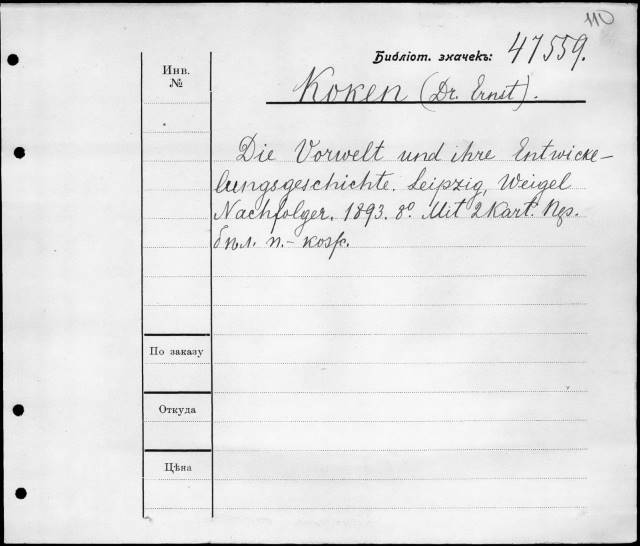 110
Инв.
№
Библіот. значекъ: 47559.
Koken (Dr. Ernst).
Die Vorwelt und ihre Entwicke-
lungsgeschichte. Leipzig, Weigel
Nachfolger. 1893. 8º. Mit 2 Kart. Пер.
бѣл. п.-кож.
По заказу
Откуда
Цѣна